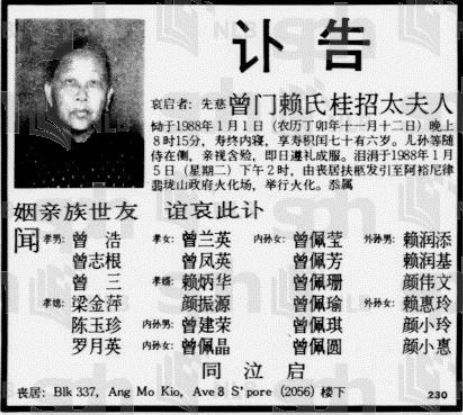 讣告
哀启者：先慈曾门赖氏桂招太夫人
恸于1988年1月1日（农历丁卯年十一月十二日）晚上
8时15分，寿终内寝，享寿积闰七十有六岁。儿孙等随
侍在侧，亲视含殓，即日遵礼成服。泪涓于1988年1月
5日（星期二）下午2时，由丧居扶柩发引至阿裕尼律
翡珑山政府火化场，举行火化。忝属
姻亲族世友 谊哀此讣
闻 孝男：曾 浩 孝女：曾兰英 内孙女：曾佩莹 外孙男：赖润添
曾志根 曾凤英 曾佩芳 赖润基
曾 三 孝婿：赖炳华 曾佩珊 颜伟文
孝媳：梁金萍 颜振源 曾佩瑜 外孙女：赖惠玲
陈玉珍 内孙男：曾建荣 曾佩琪 颜小玲
罗月英 内孙女：曾佩晶 曾佩圆 颜小惠
同泣启
丧居：Blk 337, Ang Mo Kio, Ave 3 S'pore (2056) 楼下 230